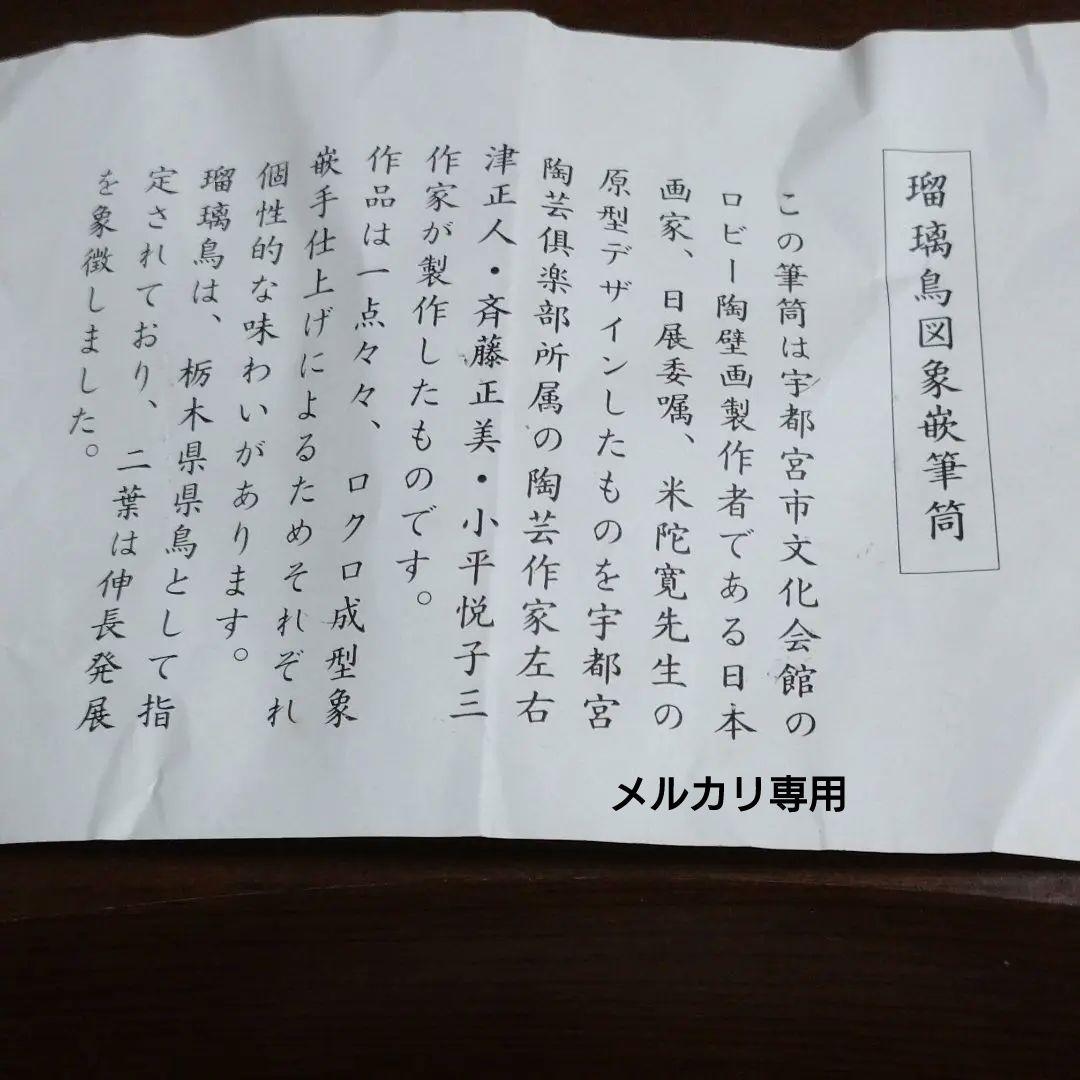 瑠璃鳥図象嵌筆筒
この筆筒は宇都宮市文化会館の
ロビー陶壁画製作者である日本
画家、日展委嘱、米陀寛先生の
原型デザインしたものを宇都宮
陶芸倶楽部所属の陶芸作家左右
津正人・斉藤正美・小平悦子三
作家が製作したものです。
作品は一点々々、ロクロ成型象
嵌手仕上げによるためそれぞれ
個性的な味わいがあります。
瑠璃鳥は、栃木県県鳥として指
定されており、二葉は伸長発展
を象徴しました。
メルカリ専用